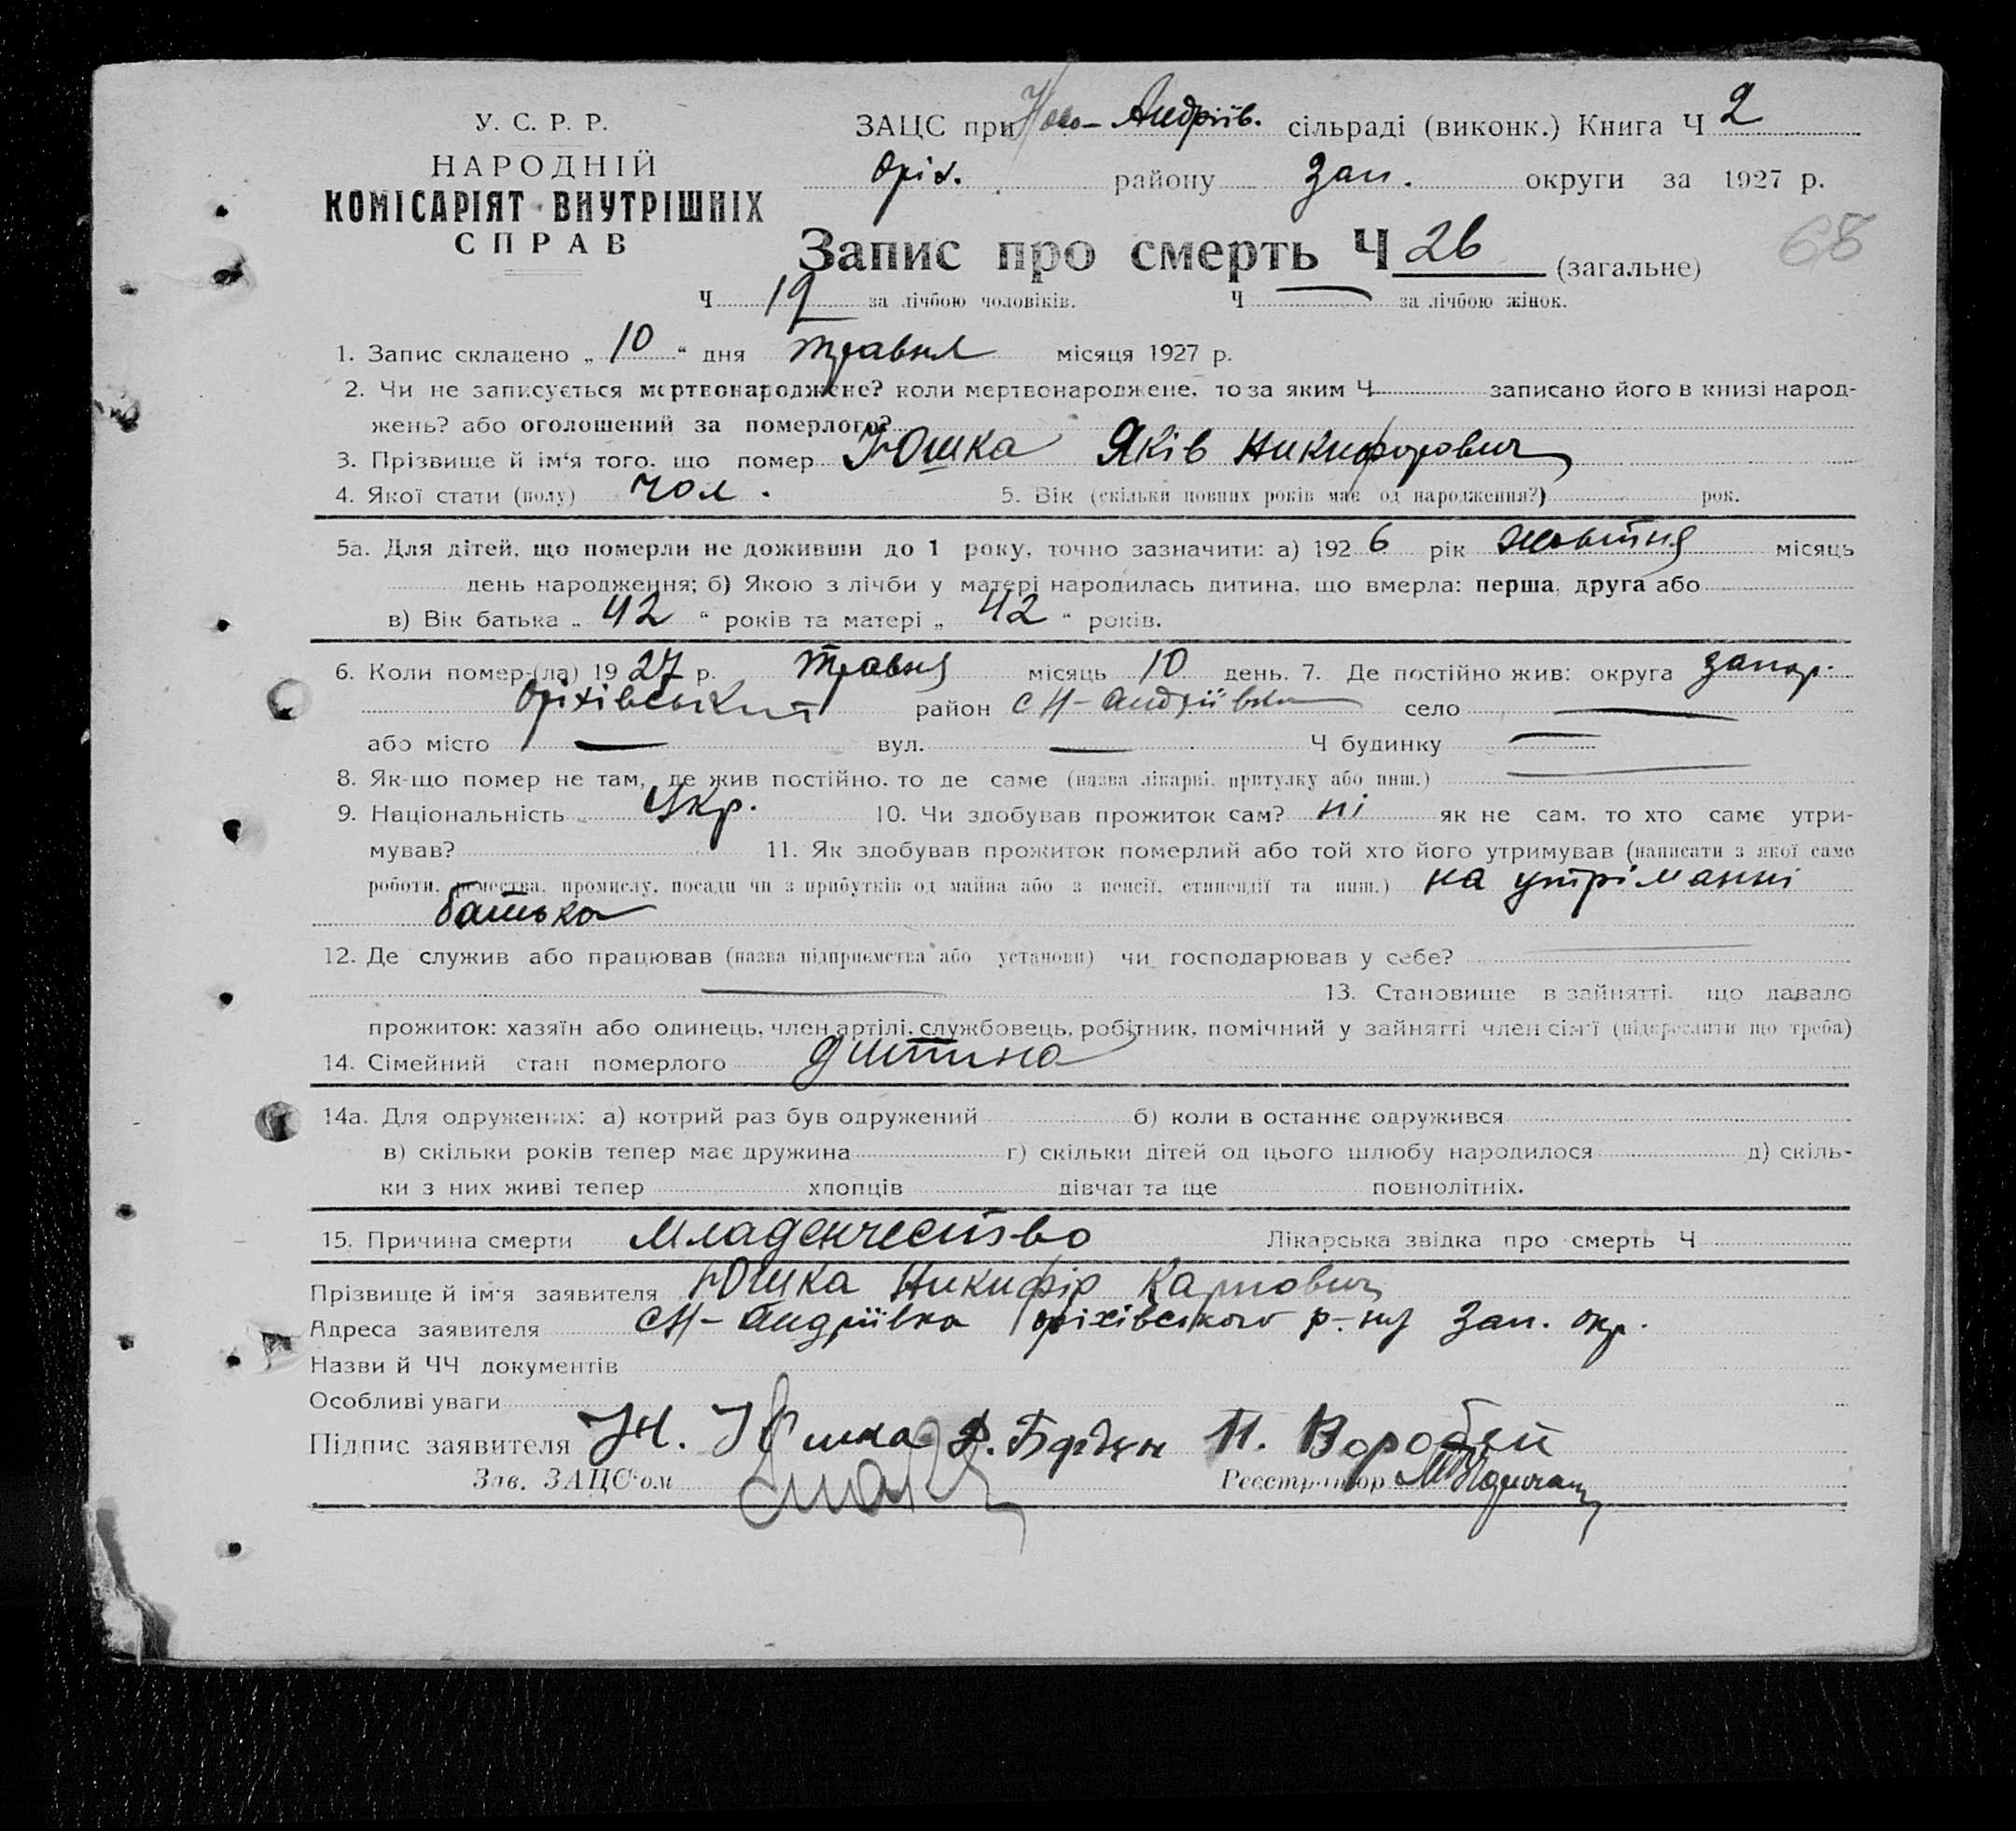 У. С. Р. Р.
НАРОДНІЙ
КОМІСАРІЯТ ВНУТРІШНІХ
СПРАВ
ЗАЦС при Ново-Андріїв. сільраді (виконк.) Книга Ч 2
Оріх. району Зап. округи за 1927 р.
Запис про смерть Ч 26 (загальне)
68
Ч 19 за лічбою чоловіків. Ч — за лічбою жінок.
1. Запис складено „ 10 “ дня травня місяця 1927 р.
2. Чи не записується мертвонароджене? коли мертвонароджене, то за яким Ч записано його в книзі народ-
жень? або оголошений за померлого?
3. Прізвище й ім‘я того, що помер Юшка Яків Никифорович
4. Якої стати (полу) чол. 5. Вік (скільки повних років має од народження?) рок.
5а. Для дітей, що померли не доживши до 1 року, точно зазначити: а) 1926 рік жовтня місяць
день народження; б) Якою з лічби у матері народилась дитина, що вмерла: перша, друга або
в) Вік батька „ 42 “ років та матері „ 42 “ років.
6. Коли помер-(ла) 1927 р. травня місяць 10 день. 7. Де постійно жив: округа Запор.
Оріхівський район с Н-Андріївка село —
або місто — вул. — Ч будинку —
8. Як-що помер не там, де жив постійно, то де саме (назва лікарні, притулку або инш.) —
9. Національність Укр. 10. Чи здобував прожиток сам? ні як не сам, то хто саме утри-
мував? 11. Як здобував прожиток померлий або той хто його утримував (написати з якої саме
роботи, ремества, промислу, посади чи з прибутків од майна або з пенсії, стипендії та инш.) на утріманні
батька
12. Де служив або працював (назва підприємства або установи) чи господарював у себе? —
— 13. Становище в зайнятті, що давало
прожиток: хазяїн або одинець, член артілі, службовець, робітник, помічний у зайнятті член сім‘ї (підкреслити що треба)
14. Сімейний стан померлого дитина
14а. Для одружених: а) котрий раз був одружений б) коли в останнє одружився
в) скільки років тепер має дружина г) скільки дітей од цього шлюбу народилося д) скіль-
ки з них живі тепер хлопців дівчат та ще повнолітніх.
15. Причина смерти Младенчество Лікарська звідка про смерть Ч
Прізвище й ім‘я заявителя Юшка Никифір Карпович
Адреса заявителя с Н-Андріївка Оріхівського р-ну Зап. окр.
Назви й ЧЧ документів
Особливі уваги
Підпис заявителя Н. Юшка П. Воробей
Зав. ЗАЦС‘ом Реєстратор